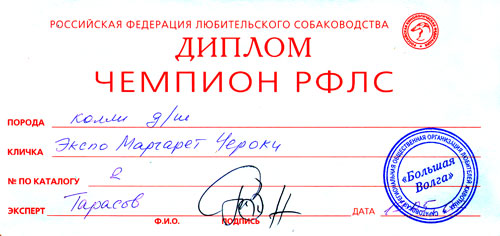 РОССИЙСКАЯ ФЕДЕРАЦИЯ ЛЮБИТЕЛЬСКОГО СОБАКОВОДСТВА
ДИПЛОМ
ЧЕМПИОН РФЛС
ПОРОДА колли д/ш
КЛИЧКА Экспо Маргарет Чероки
№ ПО КАТАЛОГУ 2
ЭКСПЕРТ Тарасов
Ф.И.О. ПОДПИСЬ ДАТА
«Большая
Волга»